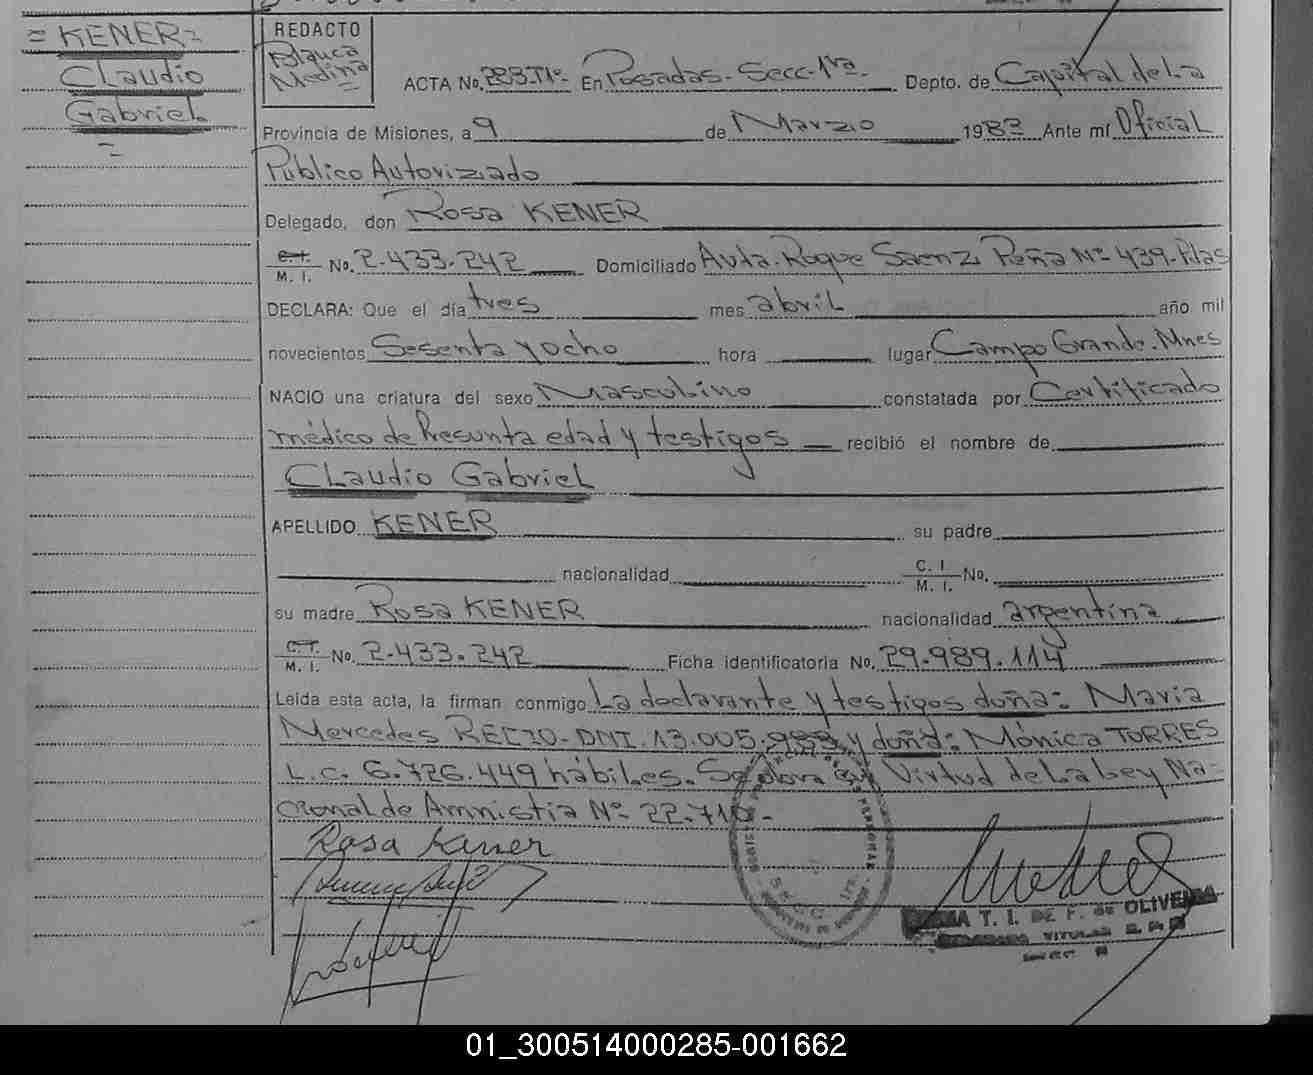 = KENER =
Claudio
Gabriel
=
REDACTO
Blanca
Medina
ACTA No. 283.Tº1º- En Posadas- Secc-1ra. Depto. de Capital de La
Provincia de Misiones, a 9 de Marzo 1983 Ante mí Oficial
Público Autorizado
Delegado, don Rosa KENER
C. I.
M. I. No. 2-433-242 Domiciliado Avda. Roque Saenz Peña Nº 439-Pdas
DECLARA: Que el día tres mes abril año mil
novecientos Sesenta y ocho hora lugar Campo Grande. Mnes
NACIO una criatura del sexo Masculino constatada por Certificado
médico de Presunta edad y testigos recibió el nombre de
Claudio Gabriel
APELLIDO KENER su padre
nacionalidad C. I.
M. I. No.
su madre Rosa KENER nacionalidad argentina
C. I.
M. I. No. 2-433.242 Ficha identificatoria No. 29.989.114
Leída esta acta, la firman conmigo La declarante y testigos doña: Maria
Mercedes RECIO-DNI.13.005.989 y doña: Mónica TORRES
L.C. 6.726.449 hábiles. Se labra en Virtud de La Ley Na=
cional de Amnistia Nº- 22.710-
Rosa Kener
T. I. DE F. de OLIVEIRA
TITULAR
01_300514000285-001662